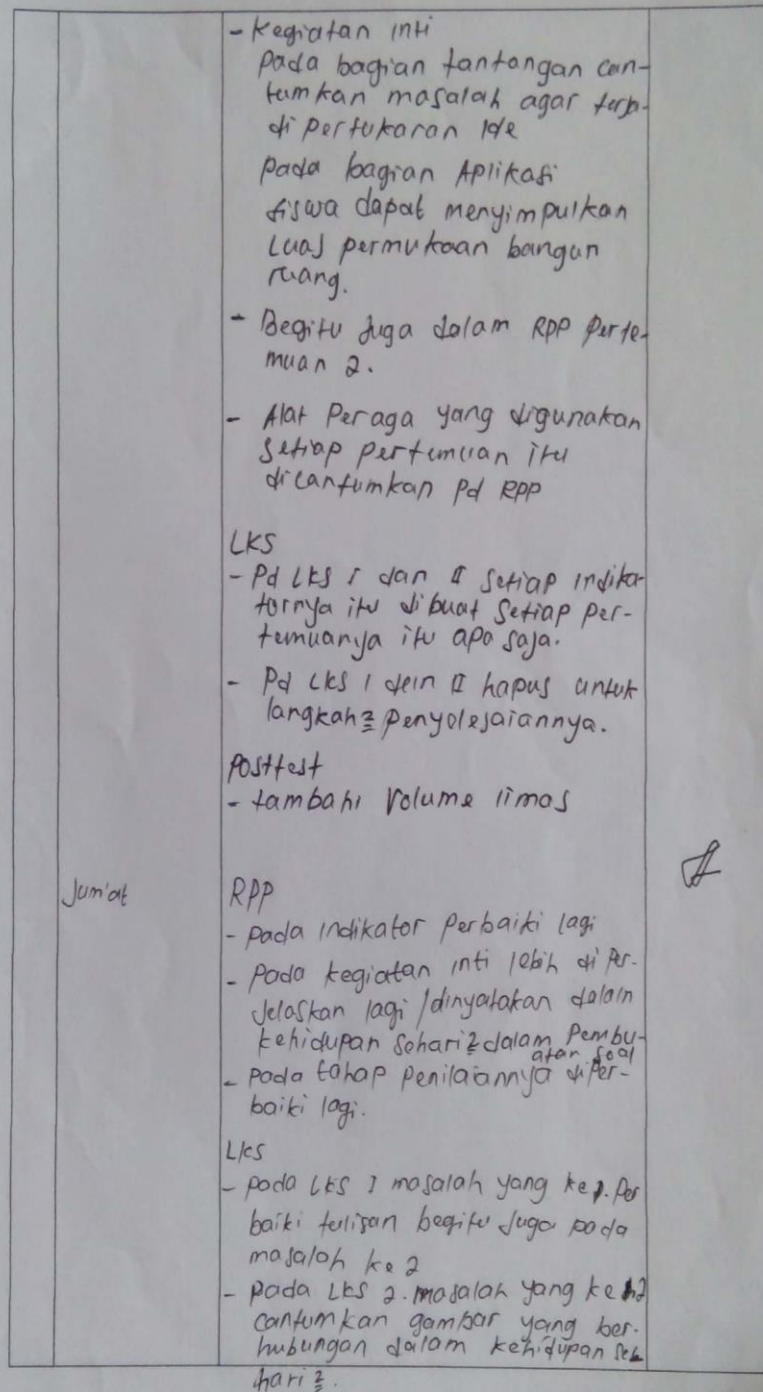 - Kegiatan inti
Pada bagian tantangan can-
tumkan masalah agar terja-
di pertukaran Ide
Pada bagian Aplikasi
siswa dapat menyimpulkan
Luas permukaan bangun
ruang.
- Begitu juga dalam RPP Perte-
muan 2.
- Alat Peraga yang digunakan
Setiap pertemuan itu
dicantumkan Pd RPP
LKS
- Pd LKS I dan II Setiap indika-
tornya itu dibuat Setiap per-
temuanya itu apa saja.
- Pd LKS I dan II hapus untuk
langkah2 Penyelesaiannya.
Posttest
- tambahi Volume limas
Jum'at
RPP
- Pada Indikator Perbaiki lagi
- Pada kegiatan inti lebih di Per-
jelaskan lagi / dinyatakan dalam
kehidupan sehari2 dalam Pembu-
atan soal
- Pada tahap Penilaiannya diper-
baiki lagi.
LKS
- Pada LKS I masalah yang ke 1. Per
baiki tulisan begitu juga pada
masalah ke 2
- Pada LKS 2. masalah yang ke 2
cantumkan gambar yang ber-
hubungan dalam kehidupan seh
hari2.